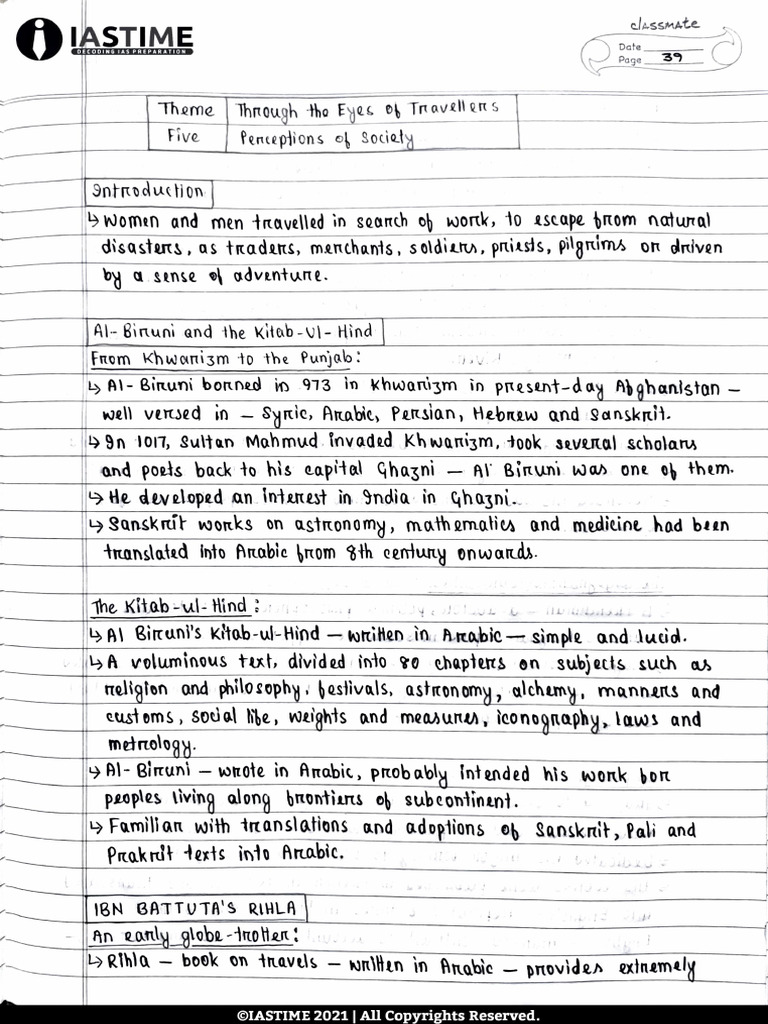 IASTIME
DECODING IAS PREPARATION
classmate
Date
Page 39
Theme Through the Eyes of Travellers
Five Perceptions of Society
Introduction
↳ Women and men travelled in search of work, to escape from natural
disasters, as traders, merchants, soldiers, priests, pilgrims or driven
by a sense of adventure.
Al-Biruni and the Kitab-Ul-Hind
From Khwarizm to the Punjab:
↳ Al-Biruni borned in 973 in Khwarizm in present-day Afghanistan –
well versed in – Syric, Arabic, Persian, Hebrew and Sanskrit.
↳ In 1017, Sultan Mahmud invaded Khwarizm, took several scholars
and poets back to his capital Ghazni – Al Biruni was one of them.
↳ He developed an interest in India in Ghazni.
↳ Sanskrit works on astronomy, mathematics and medicine had been
translated into Arabic from 8th century onwards.
The Kitab-ul-Hind:
↳ Al Biruni's Kitab-ul-Hind – written in Arabic – simple and lucid.
↳ A voluminous text, divided into 80 chapters on subjects such as
religion and philosophy, festivals, astronomy, alchemy, manners and
customs, social life, weights and measures, iconography, laws and
metrology.
↳ Al-Biruni – wrote in Arabic, probably intended his work for
peoples living along frontiers of subcontinent.
↳ Familiar with translations and adoptions of Sanskrit, Pali and
Prakrit texts into Arabic.
IBN BATTUTA'S RIHLA
An early globe-trotter:
↳ Rihla – book on travels – written in Arabic – provides extremely
©IASTIME 2021 | All Copyrights Reserved.